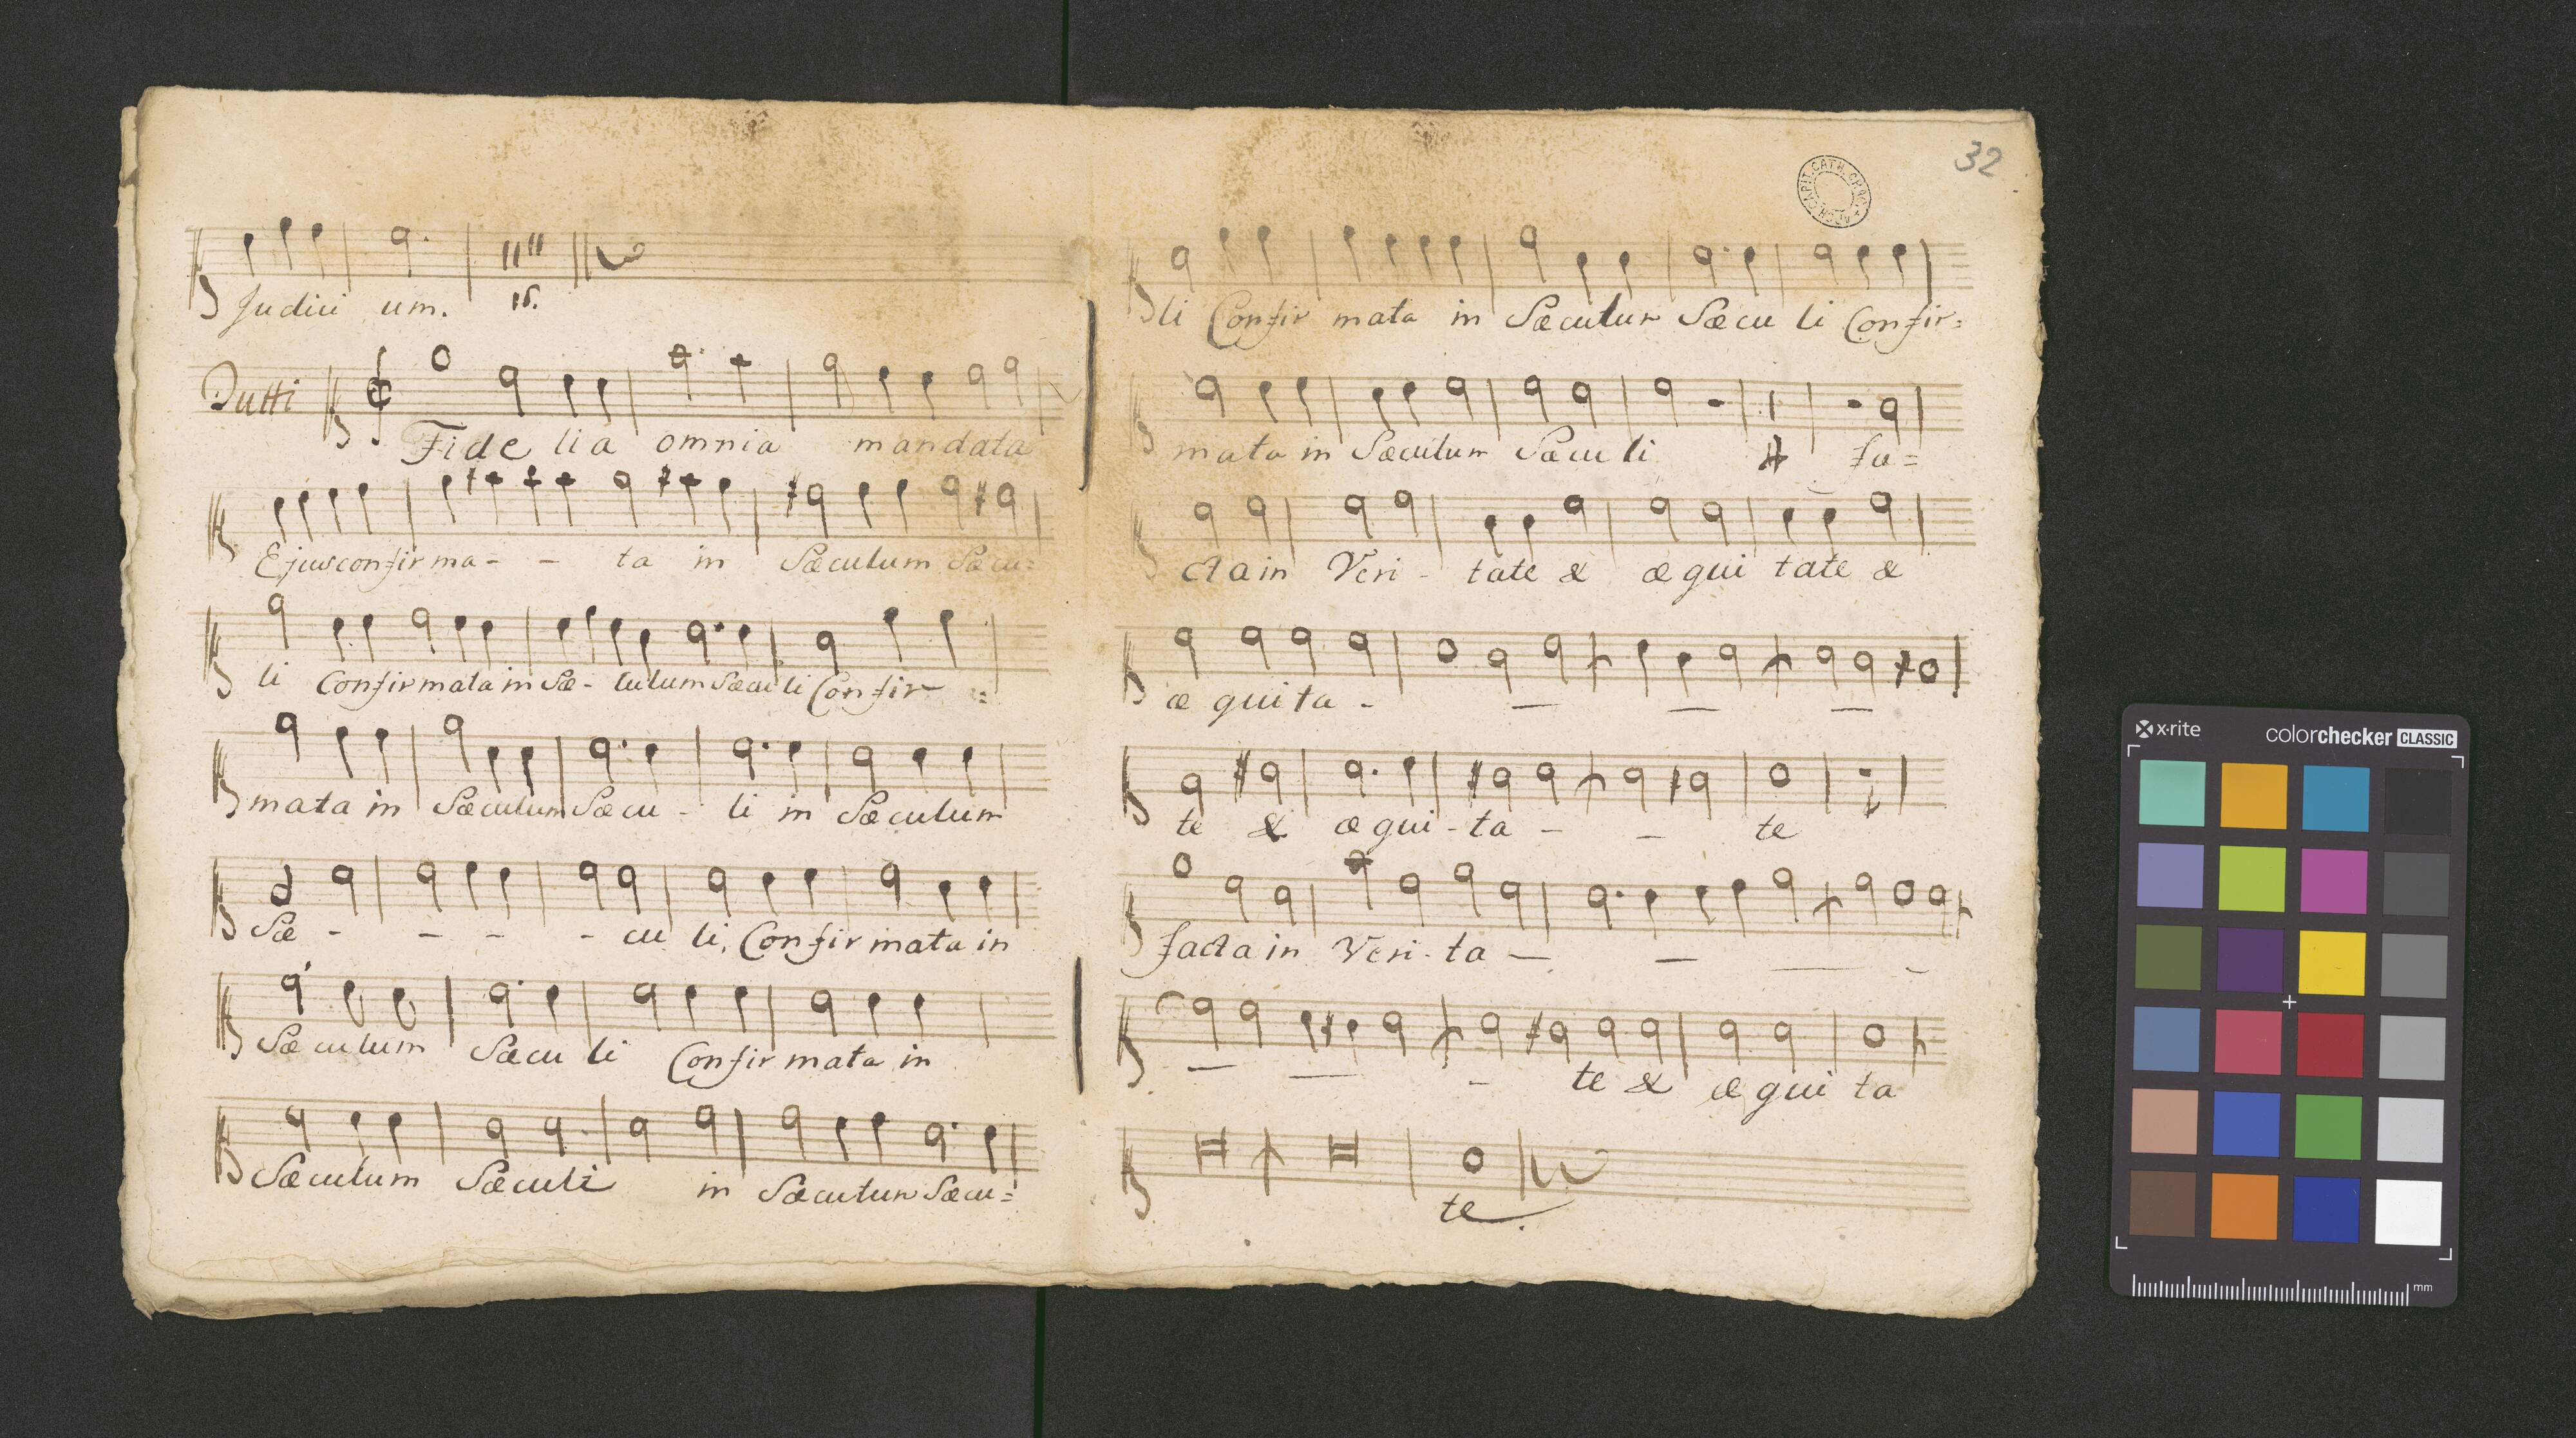 Judici um. 16.
Tutti
Fide lia omnia mandata
Ejus confir ma - - ta in Sæculum Sæcu=
li Confirmata in Sæ - culum Sæculi Confir =
mata in Sæculum Sæcu - li in Sæculum
Sæ - - - - cu li, Confirmata in
Sæculum Sæcu li Confir mata in
Sæculum Sæculi in Sæculum Sæcu=
32
ARCH. CAPIT. CATH. CRAC.
li Confir mata in Sæculum Sæcu li Confir=
mata in Sæculum Sæcu li fa=
cta in Veri - tate & æqui tate &
æ quita - — — —
te & æqui - ta - - te
facta in Veri - ta — — — -
— — - te & æqui ta
te.
x·rite colorchecker CLASSIC
mm